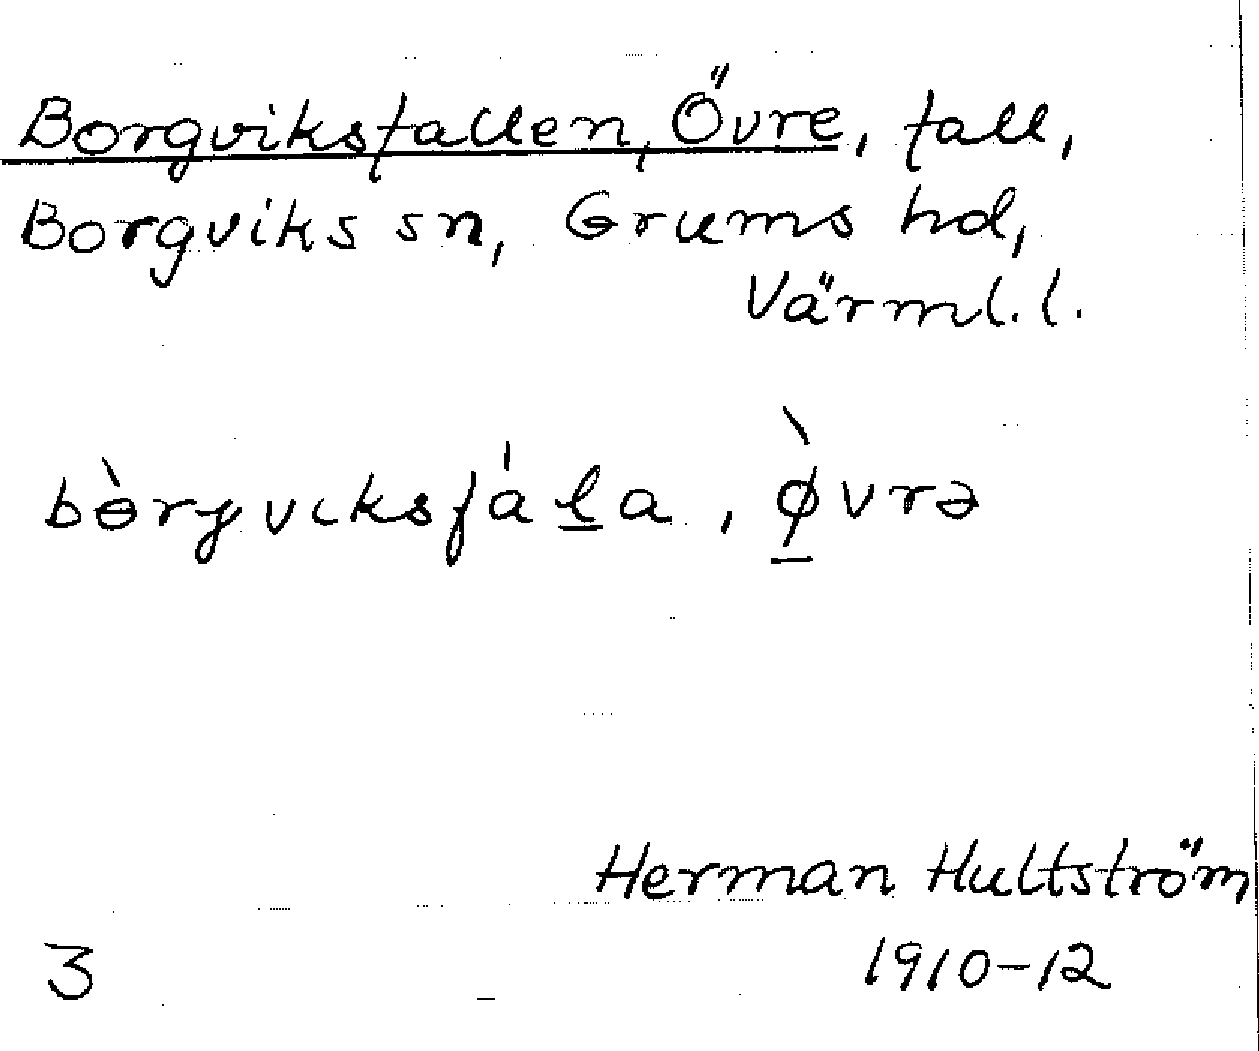 Borgviksfallen, Övre, fall,
Borgviks sn, Grums hd,
Värml. l.
bèryvıksfála, ø̀vrə
Herman Hultström
3 1910-12